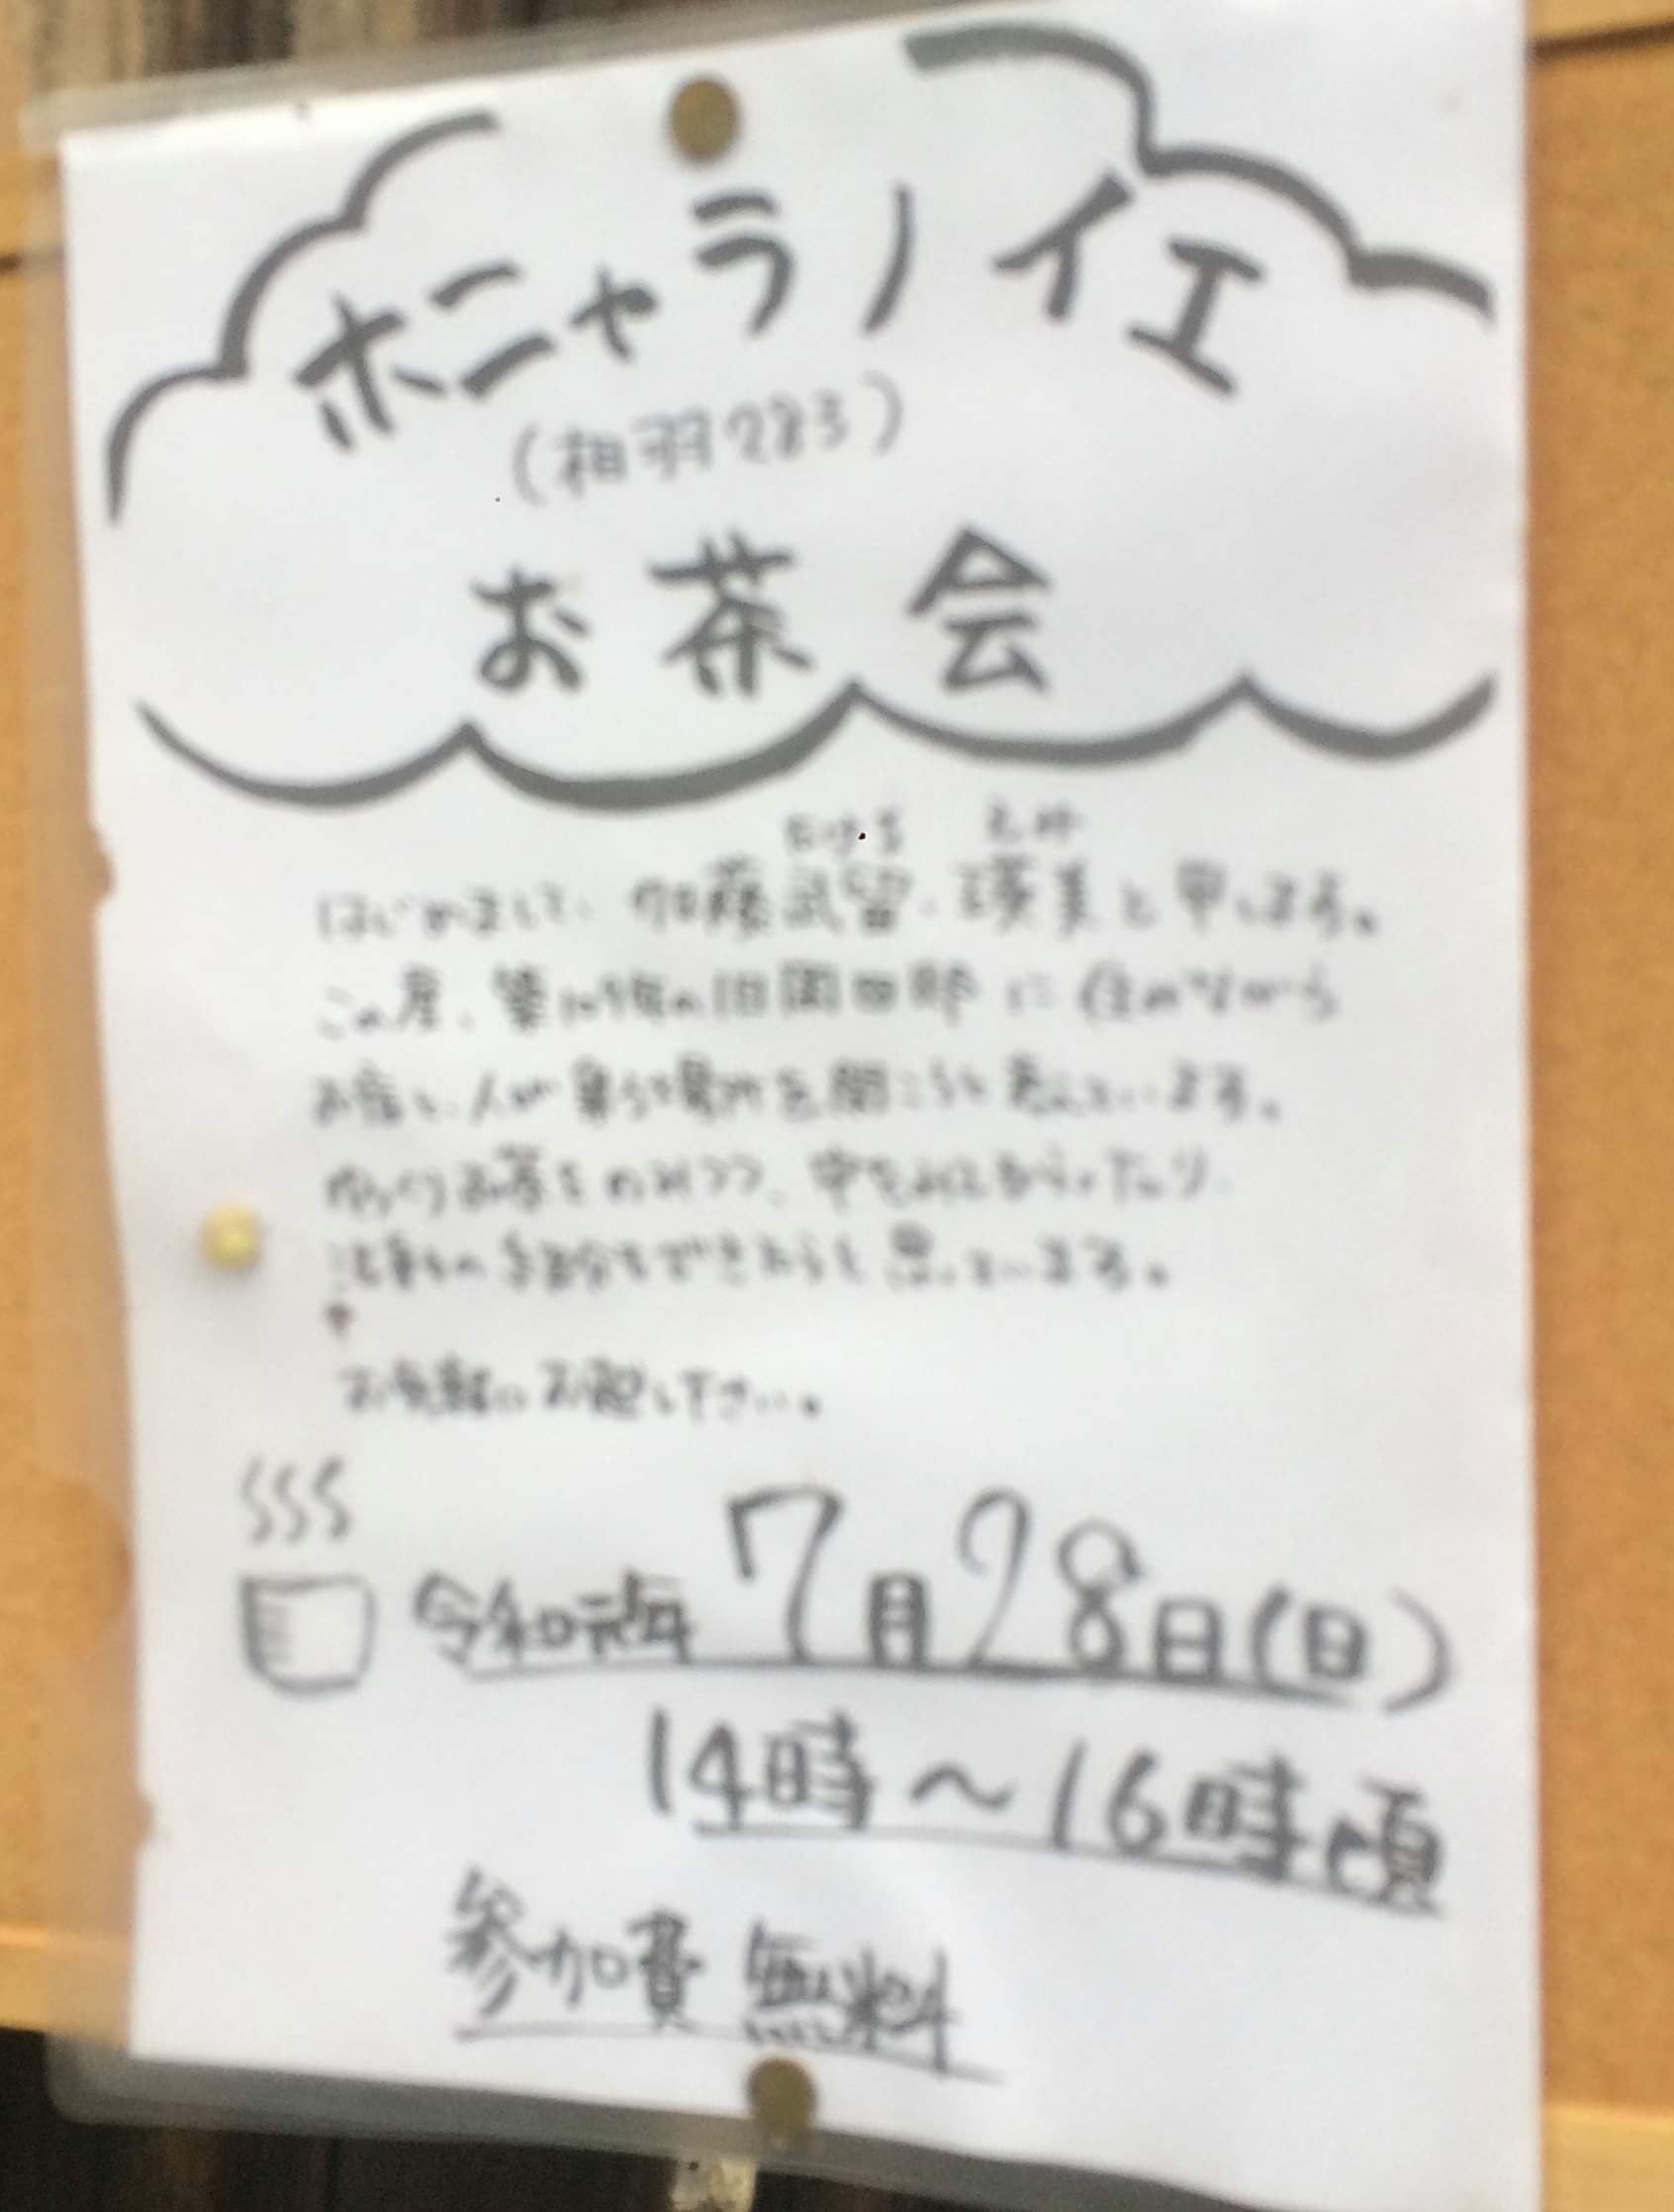 ホニャラノイエ
(相羽283)
お茶会
たける えみ
はじめまして、加藤武留、瑛美と申します。
この度、築109年の旧岡田邸に住みながら
お店と、人が集う場所を開こうと考えています。
ゆっくりお茶をのみつつ、中をみてもらったり
お話できたらと思っています。
お気軽にお越し下さい。
令和元年7月28日(日)
14時〜16時頃
参加費 無料